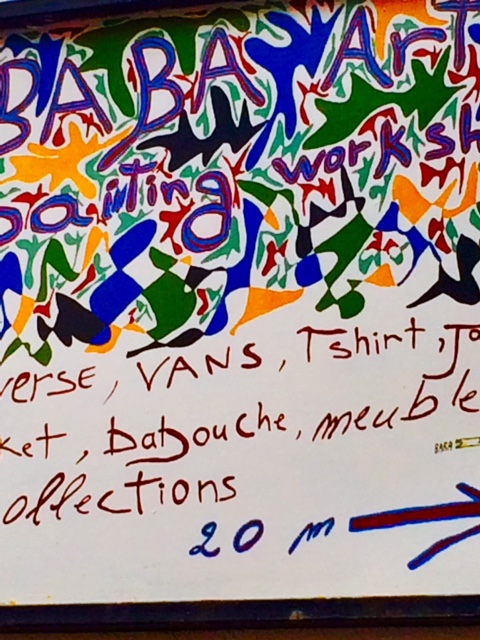 BABA Art
painting worksh
verse, VANS, Tshirt, Ja
ket, babouche, meuble
ollections
20 m